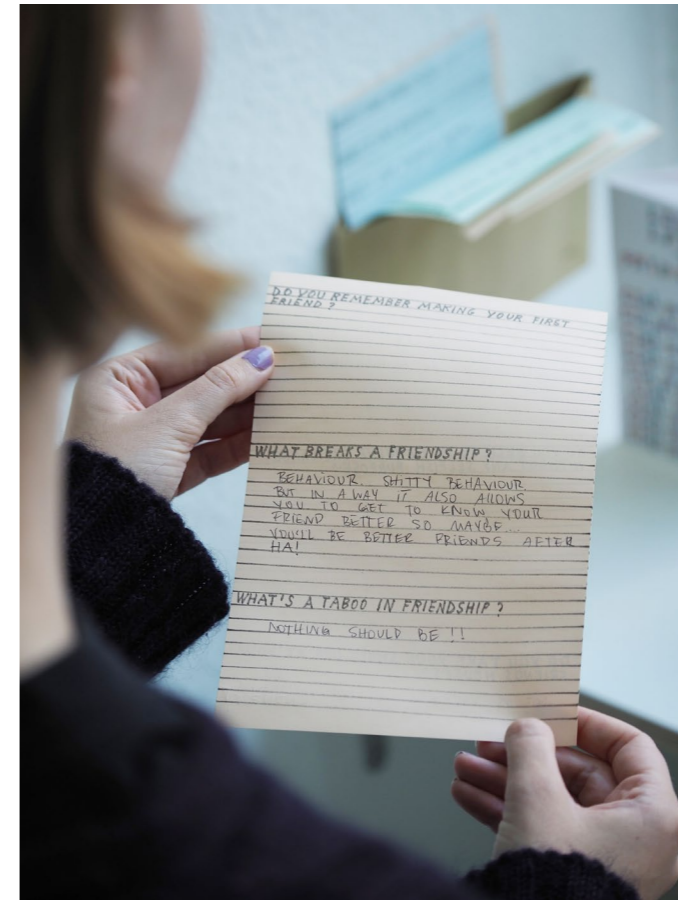 DO YOU REMEMBER MAKING YOUR FIRST
FRIEND?
WHAT BREAKS A FRIENDSHIP?
BEHAVIOUR. SHITTY BEHAVIOUR.
BUT IN A WAY IT ALSO ALLOWS
YOU TO GET TO KNOW YOUR
FRIEND BETTER SO MAYBE...
YOU'LL BE BETTER FRIENDS AFTER
HA!
WHAT'S A TABOO IN FRIENDSHIP?
NOTHING SHOULD BE!!